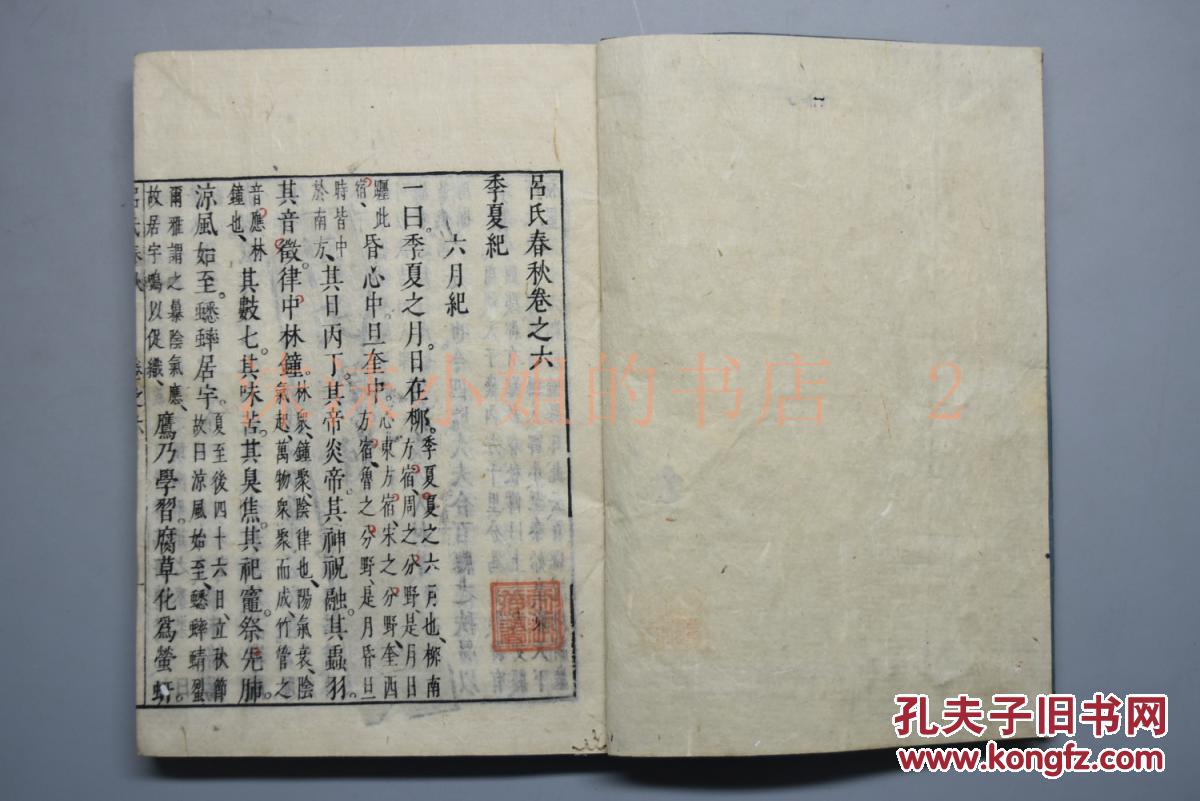 呂氏春秋卷之六
季夏紀
六月紀
一曰。季夏之月。日在柳。季夏。夏之六月也、柳南方宿、周之分野、是月日
躔此宿。昏心中。旦奎中。心東方宿、宋之分野、奎西方宿、魯之分野、是月昏旦
時皆中於南方、其日丙丁。其帝炎帝。其神祝融。其蟲羽。
其音徵。律中林鐘。林衆、鐘聚、陰律也、陽氣衰、陰氣起、萬物衆聚而成、竹管之
音應林鐘也、其數七。其味苦。其臭焦。其祀竈。祭先肺。
涼風始至。蟋蟀居宇。夏至後四十六日、立秋節故曰涼風始至、蟋蟀蜻蛚
爾雅謂之蛬、陰氣應、故居宇鳴以促織、鷹乃學習。腐草化為螢蚈。
呂氏春秋 卷之六
沫小姐的书店 2
孔夫子旧书网
www.kongfz.com